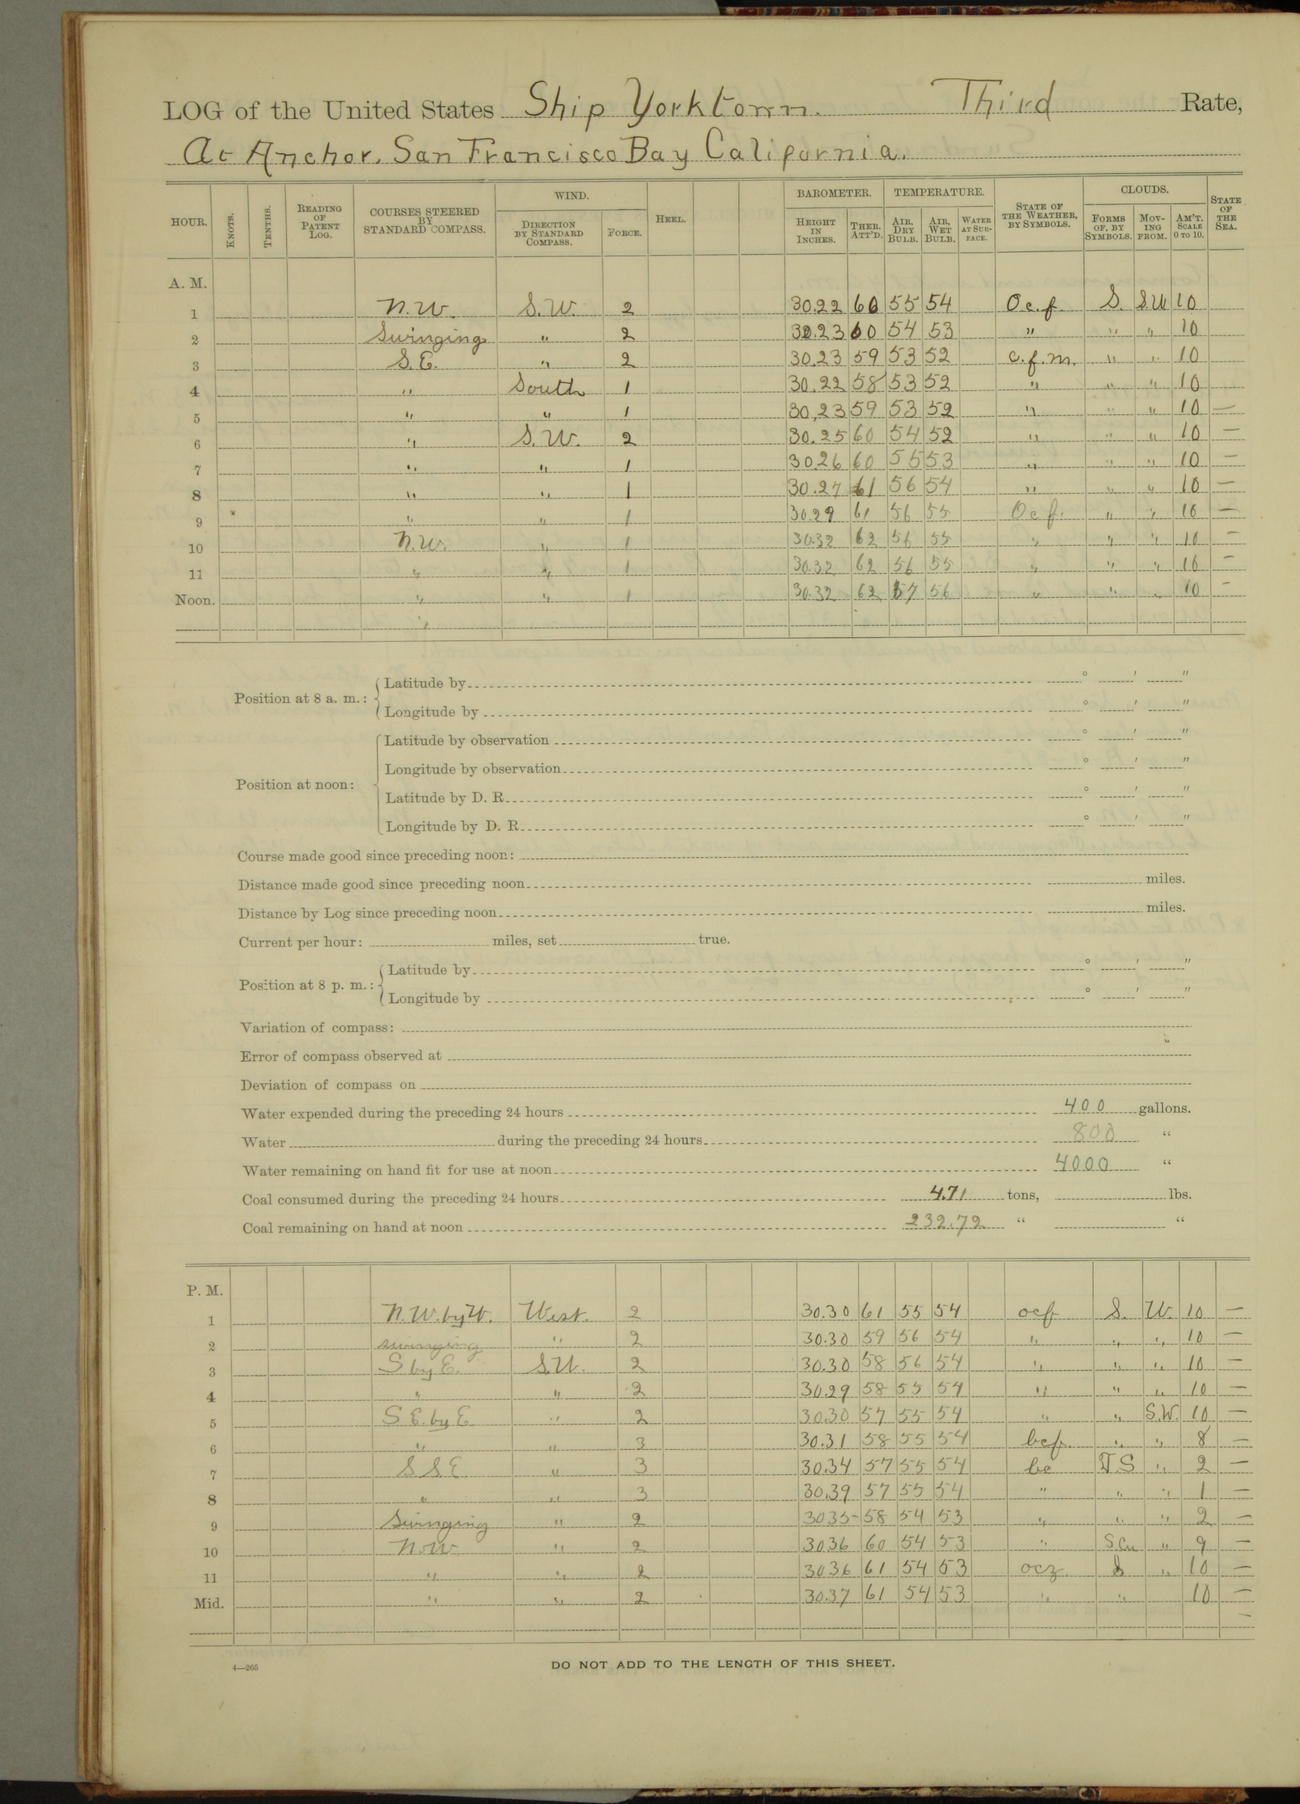 LOG of the United States Ship Yorktown. Third Rate,
At Anchor. San Francisco Bay California.
HOUR. KNOTS. TENTHS. READING OF PATENT LOG. COURSES STEERED BY STANDARD COMPASS. WIND. DIRECTION BY STANDARD COMPASS. FORCE. HEEL. BAROMETER. HEIGHT IN INCHES. THER. ATT'D. TEMPERATURE. AIR, DRY BULB. AIR, WET BULB. WATER AT SURFACE. STATE OF THE WEATHER, BY SYMBOLS. CLOUDS. FORMS OF, BY SYMBOLS. MOVING FROM. AM'T. SCALE 0 TO 10. STATE OF THE SEA.
A. M.
1 N.W. S.W. 2 30.22 60 55 54 O.c.f. S. S.W 10
2 Swinging " 2 30.23 60 54 53 " " " 10
3 S.E. " 2 30.23 59 53 52 c.f.m. " " 10
4 " South 1 30.22 58 53 52 " " " 10
5 " " 1 30,23 59 53 52 " " " 10 —
6 " S.W. 2 30.25 60 54 52 " " " 10 —
7 " " 1 30.26 60 55 53 " " " 10 —
8 " " 1 30.27 61 56 54 " " " 10 —
9 " " 1 30.29 61 56 55 O c f. " " 10 —
10 N.W. " 1 30.32 62 56 55 " " " 10 —
11 " " 1 30.32 62 56 55 " " " 10 —
Noon. " " 1 30.32 62 57 56 " " " 10 —
"
Position at 8 a. m.: Latitude by ° ' "
Longitude by ° ' "
Position at noon: Latitude by observation ° ' "
Longitude by observation ° ' "
Latitude by D. R. ° ' "
Longitude by D. R. ° ' "
Course made good since preceding noon:
Distance made good since preceding noon miles.
Distance by Log since preceding noon miles.
Current per hour: miles, set true.
Position at 8 p. m.: Latitude by ° ' "
Longitude by ° ' "
Variation of compass:
Error of compass observed at
Deviation of compass on
Water expended during the preceding 24 hours 400 gallons.
Water during the preceding 24 hours 800 "
Water remaining on hand fit for use at noon 4000 "
Coal consumed during the preceding 24 hours 4.71 tons, lbs.
Coal remaining on hand at noon 232.72 " "
P. M.
1 N.W. by W. West. 2 30.30 61 55 54 ocf S. W. 10 —
2 swinging " 2 30.30 59 56 54 " " " 10 —
3 S by E. S.W. 2 30.30 58 56 54 " " " 10 —
4 " " 2 30.29 58 55 54 " " " 10 —
5 S E. by E. " 2 30.30 57 55 54 " " S.W. 10 —
6 " " 3 30.31 58 55 54 bcf. " " 8 —
7 S S E " 3 30.34 57 55 54 bc S " 2 —
8 " " 3 30.39 57 55 54 " " " 1 —
9 Swinging " 2 3035 58 54 53 " " " 2 —
10 N.W. " 2 3036 60 54 53 " S.Cu " 9 —
11 " " 2 3036 61 54 53 ocz. S " 10 —
Mid. " " 2 30.37 61 54 53 " " 10 —
4—265
DO NOT ADD TO THE LENGTH OF THIS SHEET.